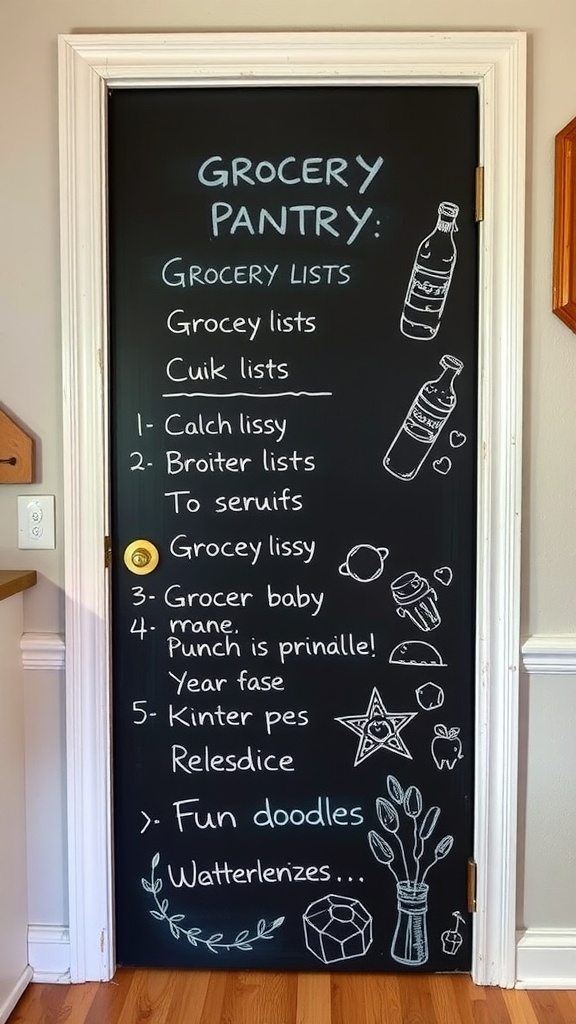 GROCERY
PANTRY:
GROCERY LISTS
Grocey lists
Cuik lists
1- Calch lissy
2- Broiter lists
To seruifs
Grocey lissy
3- Grocer baby
4- mane.
Punch is prinalle!
Year fase
5- Kinter pes
Relesdice
>- Fun doodles
Watterlenizes...